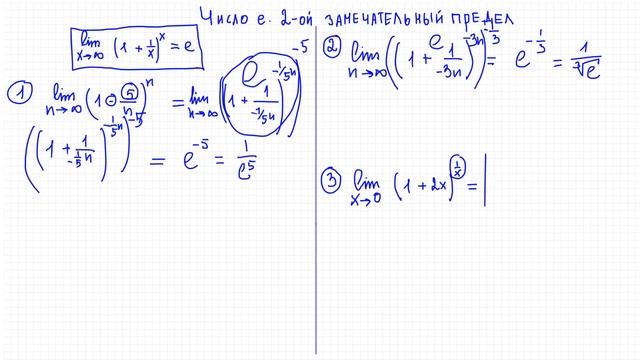 Число e. 2-ой замечательный предел
lim x→∞ (1 + 1/x)^x = e
① lim n→∞ (1 - 5/n)^n = lim n→∞ ((1 + 1/(-1/5n))^(-1/5n))^(-5) e
((1 + 1/(-1/5n))^(-1/5n))^(-5) = e^(-5) = 1/e^5
② lim n→∞ ((1 + 1/(-3n))^(-3n))^(-1/3) e = e^(-1/3) = 1/∛e
③ lim x→0 (1 + 2x)^(1/x) = |